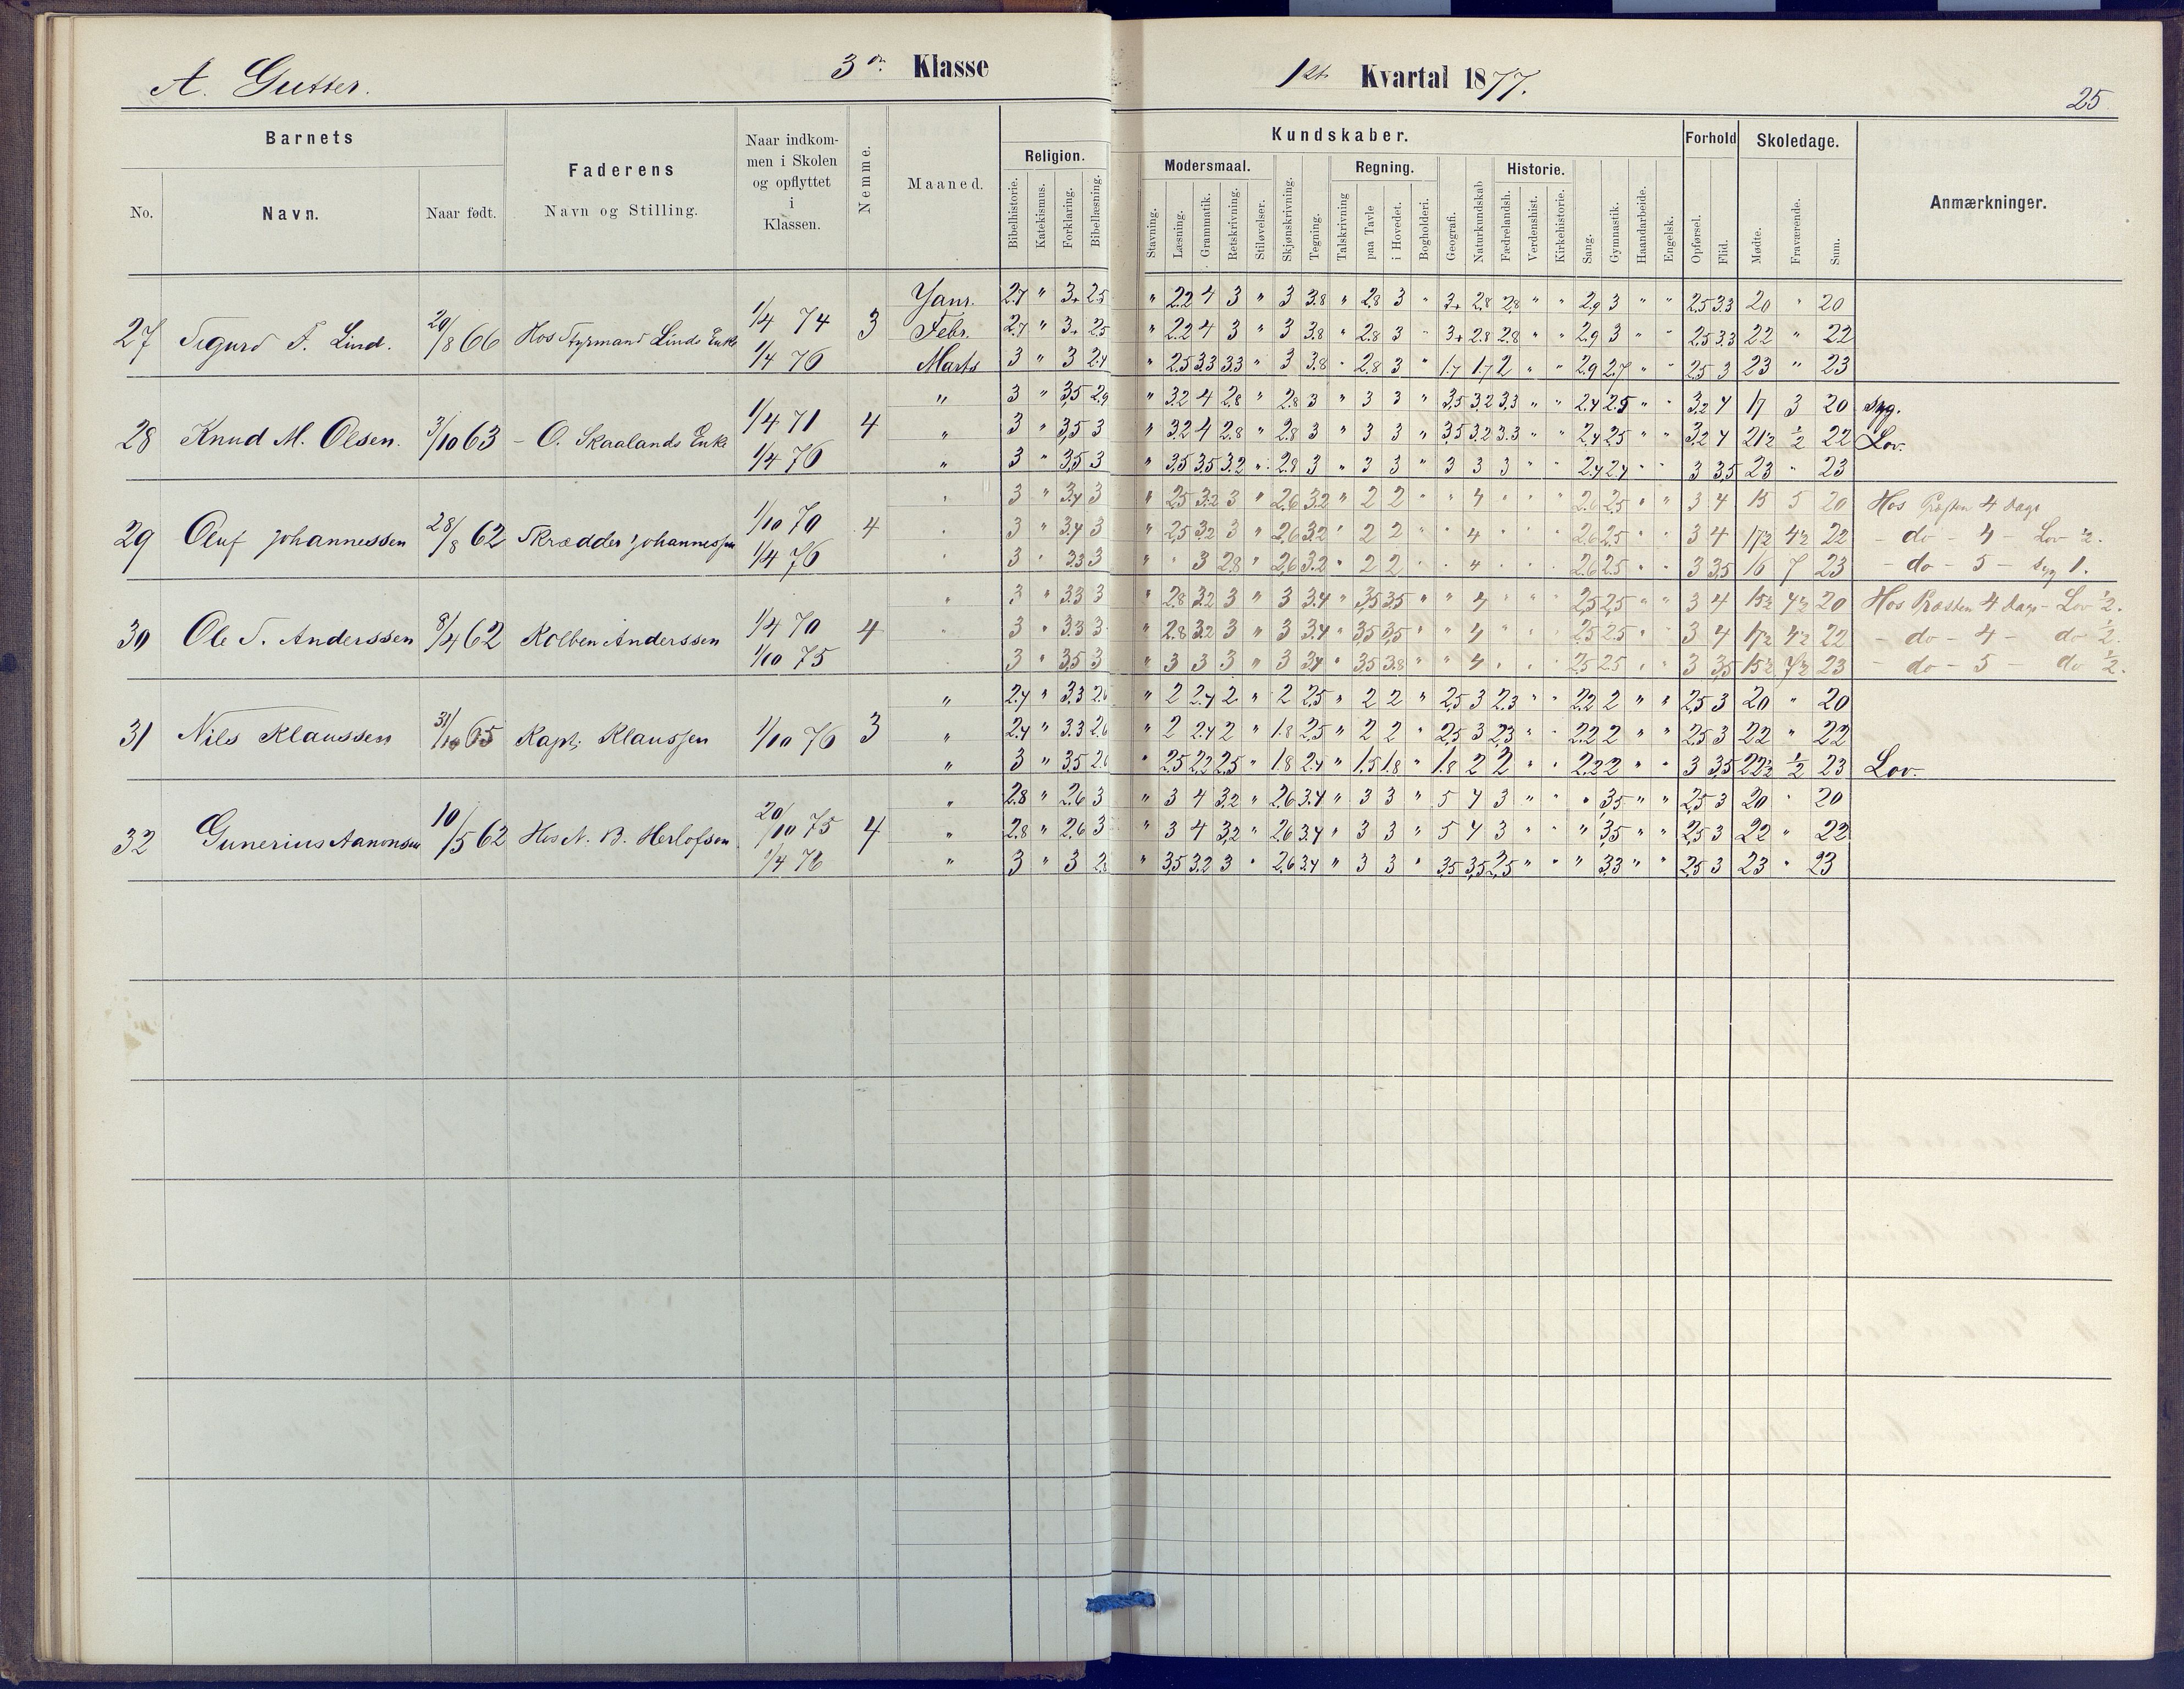 A. Gutter. 3die Klasse 1ste Kvartal 1877.
25
Barnets Faderens Naar indkommen i Skolen og opflyttet i Klassen. Nemme. Maaned. Kundskaber. Forhold Skoledage. Anmærkninger.
Religion. Modersmaal. Regning. Historie.
No. Navn. Naar født. Navn og Stilling.
Bibelhistorie. Katekismus. Forklaring. Bibellæsning. Stavning. Læsning. Grammatik. Retskrivning. Stiløvelser. Skjønskrivning. Tegning. Talskrivning paa Tavle i Hovedet. Bogholderi. Geografi. Naturkundskab Fædrelandsh. Verdenshist. Kirkehistorie. Sang. Gymnastik. Haandarbeide. Engelsk. Opførsel. Flid. Mødte. Fraværende. Sum.
Janr. 2.7 " 3+ 2.5 " 2.2 4 3 " 3 3.8 " 2.8 3 " 3+ 2.8 2.8 " " 2.9 3 " " 2.5 3.3 20 " 20
27 Sigurd F. Lind. 20/8 66 Hos Styrmand Linds Enke 1/4 74 3 Febr. 2.7 " 3+ 2.5 " 2.2 4 3 " 3 3.8 " 2.8 3 " 3+ 2.8 2.8 " " 2.9 3 " " 2.5 3.3 22 " 22
1/4 76 Marts 3 " 3 2.4 " 2.5 3.3 3.3 " 3 3.8 " 2.8 3 " 1.7 1.7 2 " " 2.9 2.7 " " 2.5 3 23 " 23
" 3 " 3,5 2.9 " 3.2 4 2.8 " 2.8 3 " 3 3 " 3,5 3.2 3.3 " " 2.4 2.5 " " 3.2 4 17 3 20 syg.
28 Knud M. Olsen. 3/10 63 - O. Skaalands Enke 1/4 71 4 " 3 " 3,5 3 " 3.2 4 2.8 " 2.8 3 " 3 3 " 3,5 3.2 3.3 " " 2.4 2.5 " " 3.2 4 21½ ½ 22 Lov.
1/4 76 " 3 " 3,5 3 " 3,5 3.5 3.2 " 2.9 3 " 3 3 " 3 3 3 " " 2.4 2.4 " " 3 3.5 23 " 23
" 3 " 3.4 3 " 2.5 3.2 3 " 2.6 3.2 " 2 2 " " 4 " " " 2.6 2.5 " " 3 4 15 5 20 Hos Præsten 4 dage
29 Oluf Johannessen 28/8 62 Skrædder Johannessen 1/10 70 4 " 3 " 3,4 3 " 2,5 3.2 3 " 2,6 3.2 " 2 2 " " 4 " " " 2.6 2.5 " " 3 4 17½ 4½ 22 - do - 4 - Lov ½.
1/4 76 " 3 " 3.3 3 " " 3 2.8 " 2,6 3.2 " 2 2 " " 4 " " " 2.6 2.5 " " 3 3,5 16 7 23 - do - 5 - syg 1.
" 3 " 3.3 3 " 2.8 3.2 3 " 3 3.4 " 3,5 3.5 " " 4 " " " 2,5 2,5 " " 3 4 15½ 4½ 20 Hos Præsten 4 dage - Lov ½.
30 Ole S. Anderssen 8/4 62 Kolben Anderssen 1/4 70 4 " 3 " 3.3 3 " 2.8 3.2 3 " 3 3.4 " 3,5 3,5 " " 4 " " " 2.5 2.5 " " 3 4 17½ 4½ 22 - do - 4 - do ½.
1/10 75 " 3 " 3.5 3 " 3 3 3 " 3 3.4 " 3.5 3.8 " " 4 " " " 2.5 2.5 " " 3 3,5 15½ 7½ 23 - do - 5 - do ½.
" 2.4 " 3,3 2.6 " 2 2.4 2 " 2 2,5 " 2 2 " 2,5 3 2.3 " " 2.2 2 " " 2,5 3 20 " 20
31 Nils Klaussen 31/10 65 Kapt: Klaussen 1/10 76 3 " 2.4 " 3.3 2.6 " 2 2.4 2 " 1.8 2,5 " 2 2 " 2,5 3 2,3 " " 2.2 2 " " 2,5 3 22 " 22
" 3 " 3,5 2.6 " 2,5 2.2 2.5 " 1.8 2.4 " 1,5 1.8 " 1.8 2 2 " " 2.2 2 " " 3 3,5 22½ ½ 23 Lov.
" 2.8 " 2.6 3 " 3 4 3.2 " 2,6 3.4 " 3 3 " 5 4 3 " " " 3,5 " " 2,5 3 20 " 20
32 Gunerius Aanonsen 10/5 62 Hos N. B. Herlofsen 20/10 75 4 " 2.8 " 2.6 3 " 3 4 3,2 " 2.6 3,4 " 3 3 " 5 4 3 " " " 3,5 " " 2,5 3 22 " 22
1/4 76 " 3 " 3 2.8 " 3,5 3.2 3 " 2.6 3.4 " 3 3 " 3.5 3,5 2,5 " " " 3,3 " " 2,5 3 23 " 23